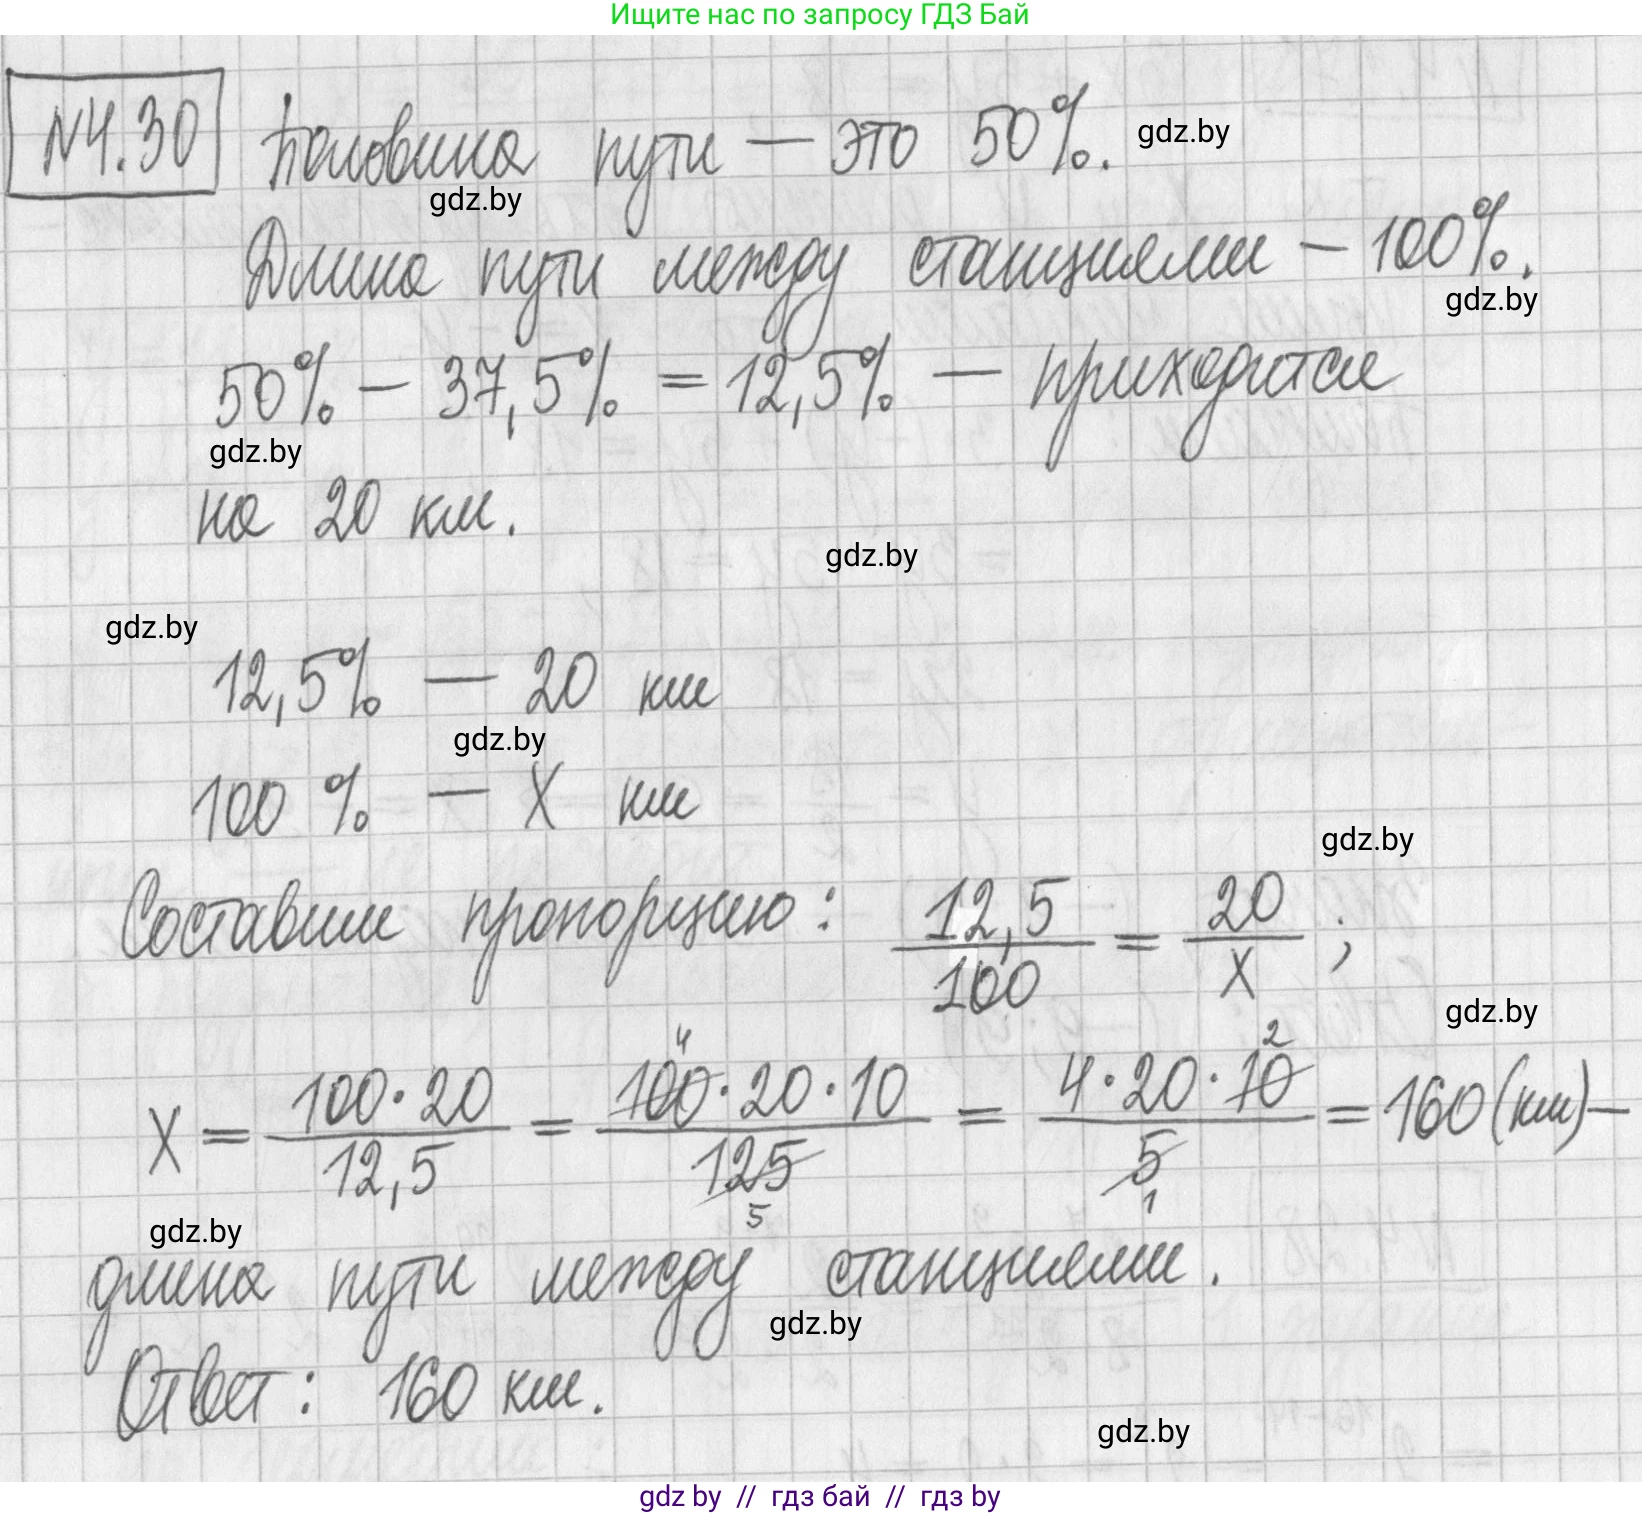 Ищите нас по запросу ГДЗ Бай
N4.30 Половина пути — это 50%. gdz.by
gdz.by
Длина пути между станциями — 100%.
gdz.by
50% — 37,5% = 12,5% — приходится
gdz.by
на 20 км.
gdz.by
gdz.by
12,5% — 20 км
gdz.by
100 % — X км
gdz.by
Составим пропорцию: 12,5/100 = 20/X ;
gdz.by
X = 100·20/12,5 = 100·20·10/125 = 4·20·10/5 = 160 (км) —
4 2
5 1
gdz.by
длина пути между станциями.
gdz.by
Ответ: 160 км.
gdz.by
gdz by // гдз бай // гдз by